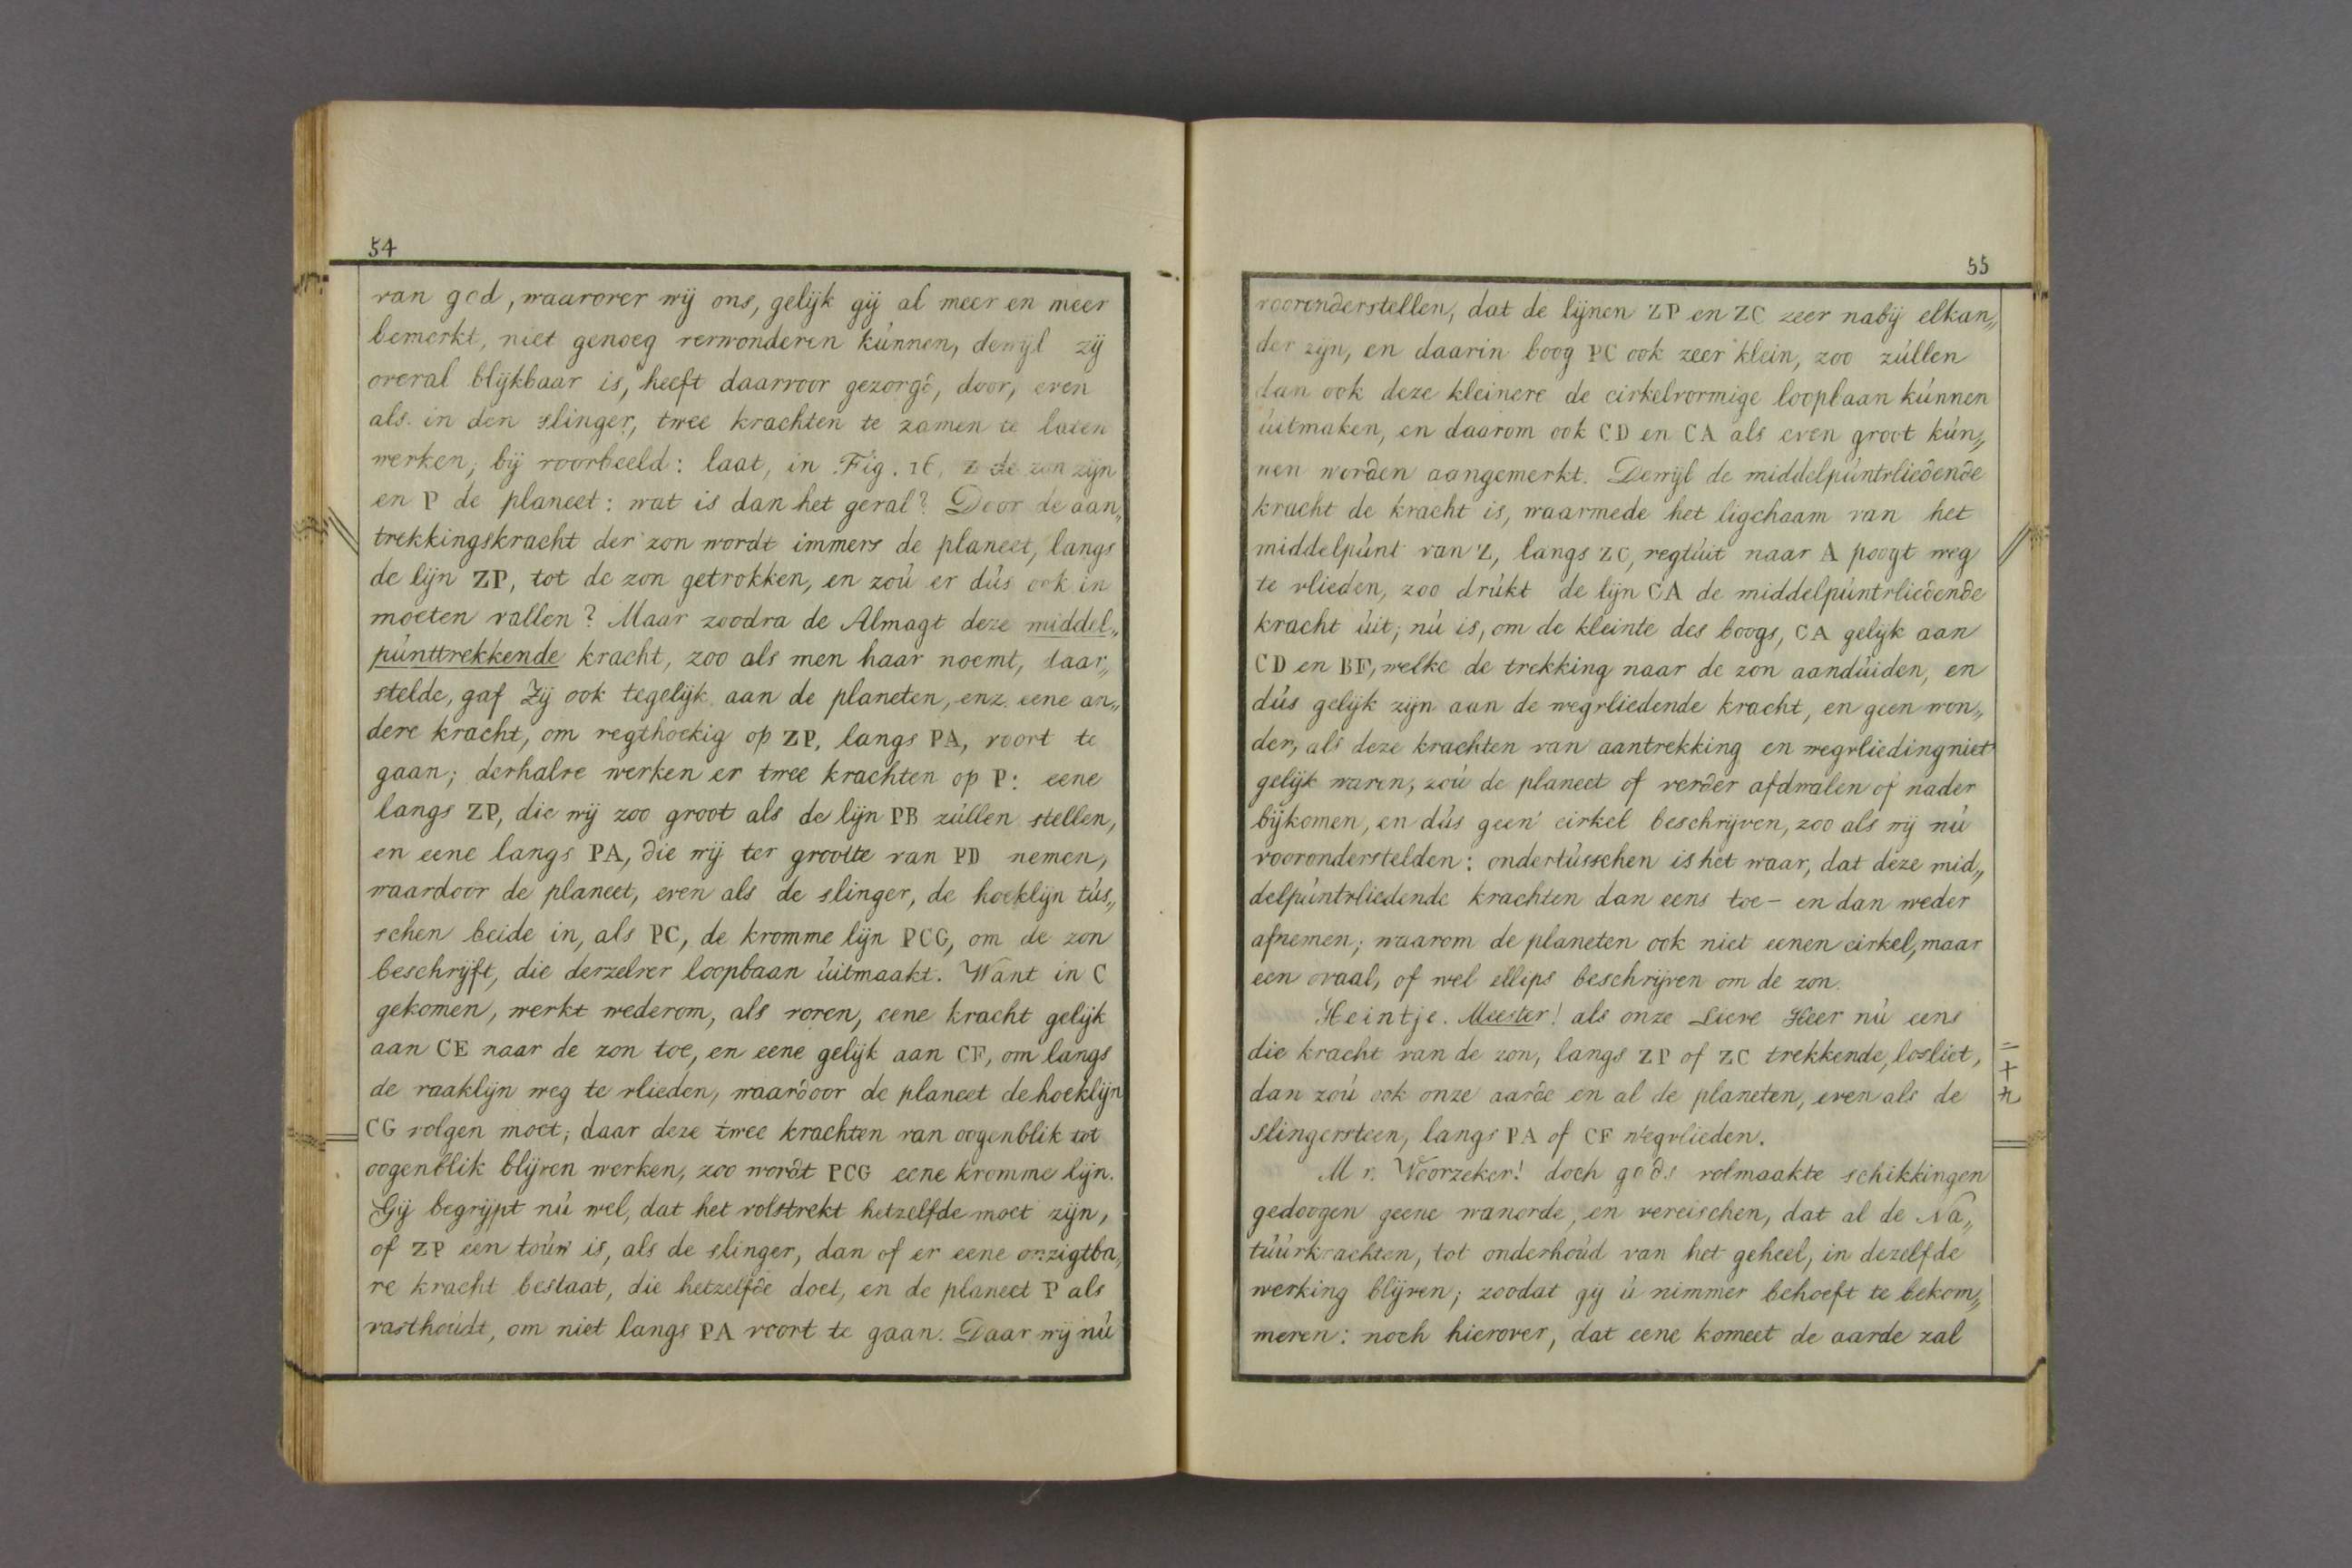 54
van god, waarover wij ons, gelijk gij al meer en meer
bemerkt, niet genoeg verwonderen kúnnen, dewijl zij
overal blijkbaar is, heeft daarvoor gezorgd, door, even
als in den slinger, twee krachten te zamen te laten
werken; bij voorbeeld: laat, in Fig. 16, Z de zon zijn
en P de planeet: wat is dan het geval? Door de aan„
trekkingskracht der zon wordt immers de planeet, langs
de lijn ZP, tot de zon getrokken, en zoú er dús ook in
moeten vallen? Maar zoodra de Almagt deze middel„
púnttrekkende kracht, zoo als men haar noemt, daar„
stelde, gaf Zij ook tegelijk aan de planeten, enz. eene an„
dere kracht, om regthoekig op ZP, langs PA, voort te
gaan; derhalve werken er twee krachten op P: eene
langs ZP, die wij zoo groot als de lijn PB zúllen stellen,
en eene langs PA, die wij ter grootte van PD nemen,
waardoor de planeet, even als de slinger, de hoeklijn tús„
schen beide in, als PC, de kromme lijn PCG, om de zon
beschrijft, die derzelver loopbaan úitmaakt. Want in C
gekomen, werkt wederom, als voren, eene kracht gelijk
aan CE naar de zon toe, en eene gelijk aan CF, om langs
de raaklijn weg te vlieden, waardoor de planeet de hoeklijn
CG volgen moet; daar deze twee krachten van oogenblik tot
oogenblik blijven werken, zoo wordt PCG eene kromme lijn.
Gij begrijpt nú wel, dat het volstrekt hetzelfde moet zijn,
of ZP een toúw is, als de slinger, dan of er eene onzigtba„
re kracht bestaat, die hetzelfde doet, en de planeet P als
vasthoúdt, om niet langs PA voort te gaan. Daar wij nú
55
vooronderstellen, dat de lijnen ZP en ZC zeer nabij elkan„
der zijn, en daarin boog PC ook zeer klein, zoo zúllen
dan ook deze kleinere de cirkelvormige loopbaan kúnnen
úitmaken, en daarom ook CD en CA als even groot kún„
nen worden aangemerkt. Dewijl de middelpúntvliedende
kracht de kracht is, waarmede het ligchaam van het
middelpúnt van Z, langs ZC, regtúit naar A poogt weg
te vlieden, zoo drúkt de lijn CA de middelpúntvliedende
kracht úit; nú is, om de kleinte des boogs, CA gelijk aan
CD en BF, welke de trekking naar de zon aandúiden, en
dús gelijk zijn aan de wegvliedende kracht, en geen won„
der, als deze krachten van aantrekking en wegvlieding niet
gelijk waren, zoú de planeet of verder afdwalen of nader
bijkomen, en dús geen cirkel beschrijven, zoo als wij nú
vooronderstelden: ondertússchen is het waar, dat deze mid„
delpúntvliedende krachten dan eens toe- en dan weder
afnemen; waarom de planeten ook niet eenen cirkel, maar
een ovaal, of wel ellips beschrijven om de zon.
Heintje. Meester! als onze Lieve Heer nú eens
die kracht van de zon, langs ZP of ZC trekkende, losliet,
dan zoú ook onze aarde en al de planeten, even als de
slingersteen, langs PA of CF wegvlieden.
Mr. Voorzeker! doch gods volmaakte schikkingen
gedoogen geene wanorde, en vereischen, dat al de Na„
túúrkrachten, tot onderhoúd van het geheel, in dezelfde
werking blijven; zoodat gij ú nimmer behoeft te bekom„
meren: noch hierover, dat eene komeet de aarde zal